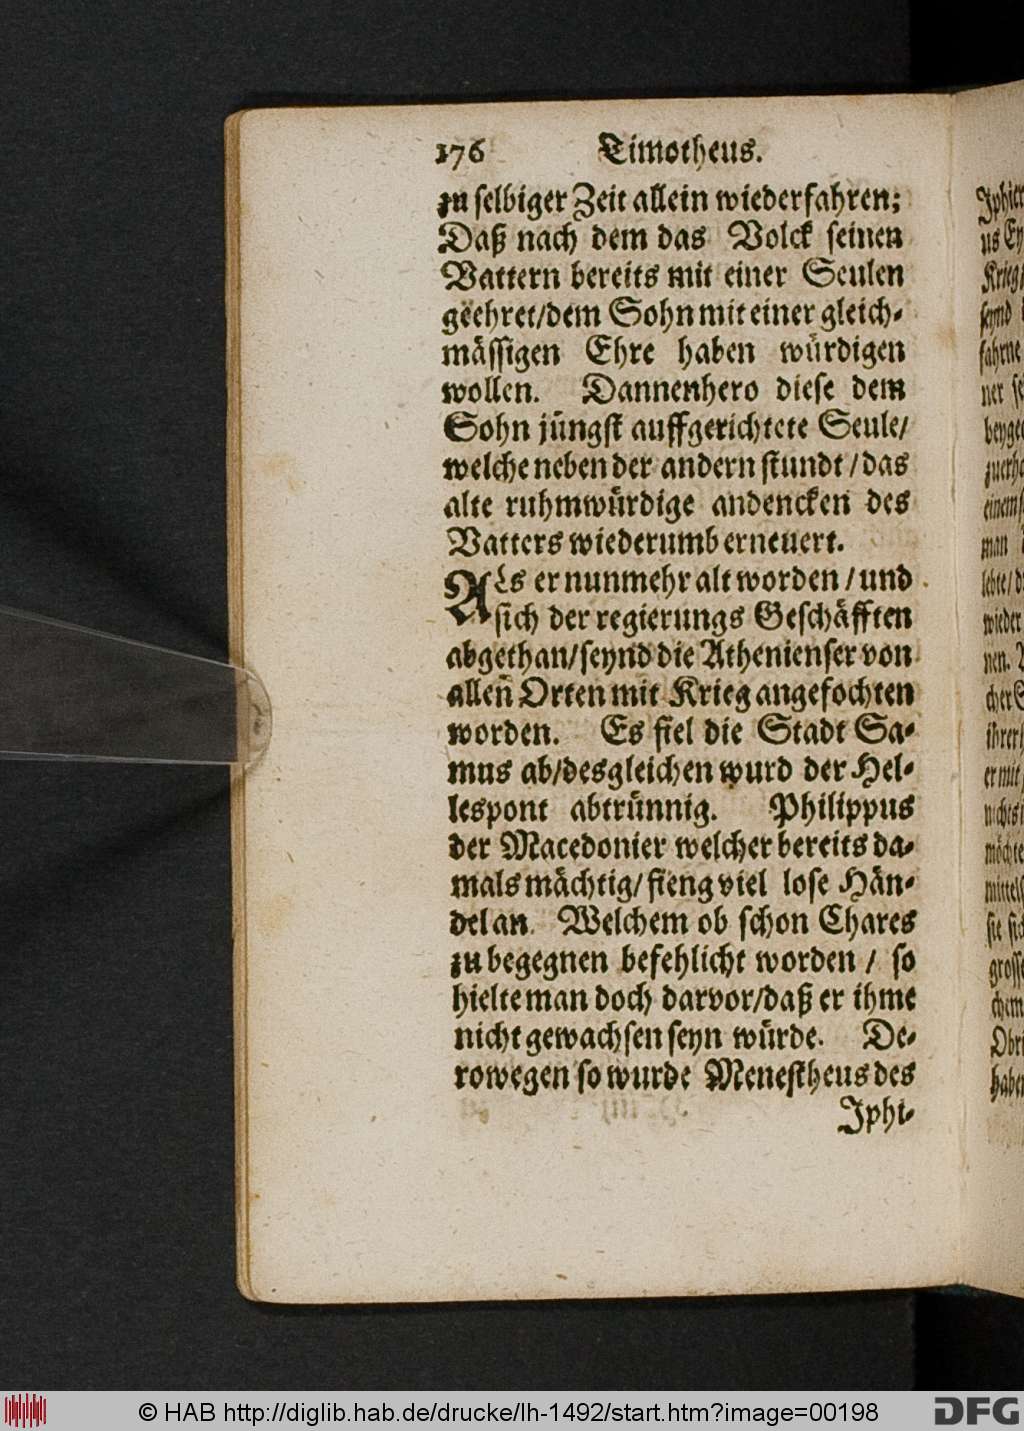 176 Timotheus.
zu selbiger Zeit allein wiederfahren;
Daß nach dem das Volck seinen
Vattern bereits mit einer Seulen
geehret/dem Sohn mit einer gleich-
mässigen Ehre haben würdigen
wollen. Dannenhero diese dem
Sohn jüngst auffgerichtete Seule/
welche neben der andern stundt/das
alte ruhmwürdige andencken des
Vatters wiederumb erneuert.
ALs er nunmehr alt worden/und
sich der regierungs Geschäfften
abgethan/seynd die Athenienser von
allen Orten mit Krieg angefochten
worden. Es fiel die Stadt Sa-
mus ab/desgleichen wurd der Hel-
lespont abtrünnig. Philippus
der Macedonier welcher bereits da-
mals mächtig/fieng viel lose Hän-
del an. Welchem ob schon Chares
zu begegnen befehlicht worden/ so
hielte man doch darvor/daß er ihme
nicht gewachsen seyn würde. De-
rowegen so wurde Menestheus des
Iphi-
© HAB http://diglib.hab.de/drucke/lh-1492/start.htm?image=00198
DFG